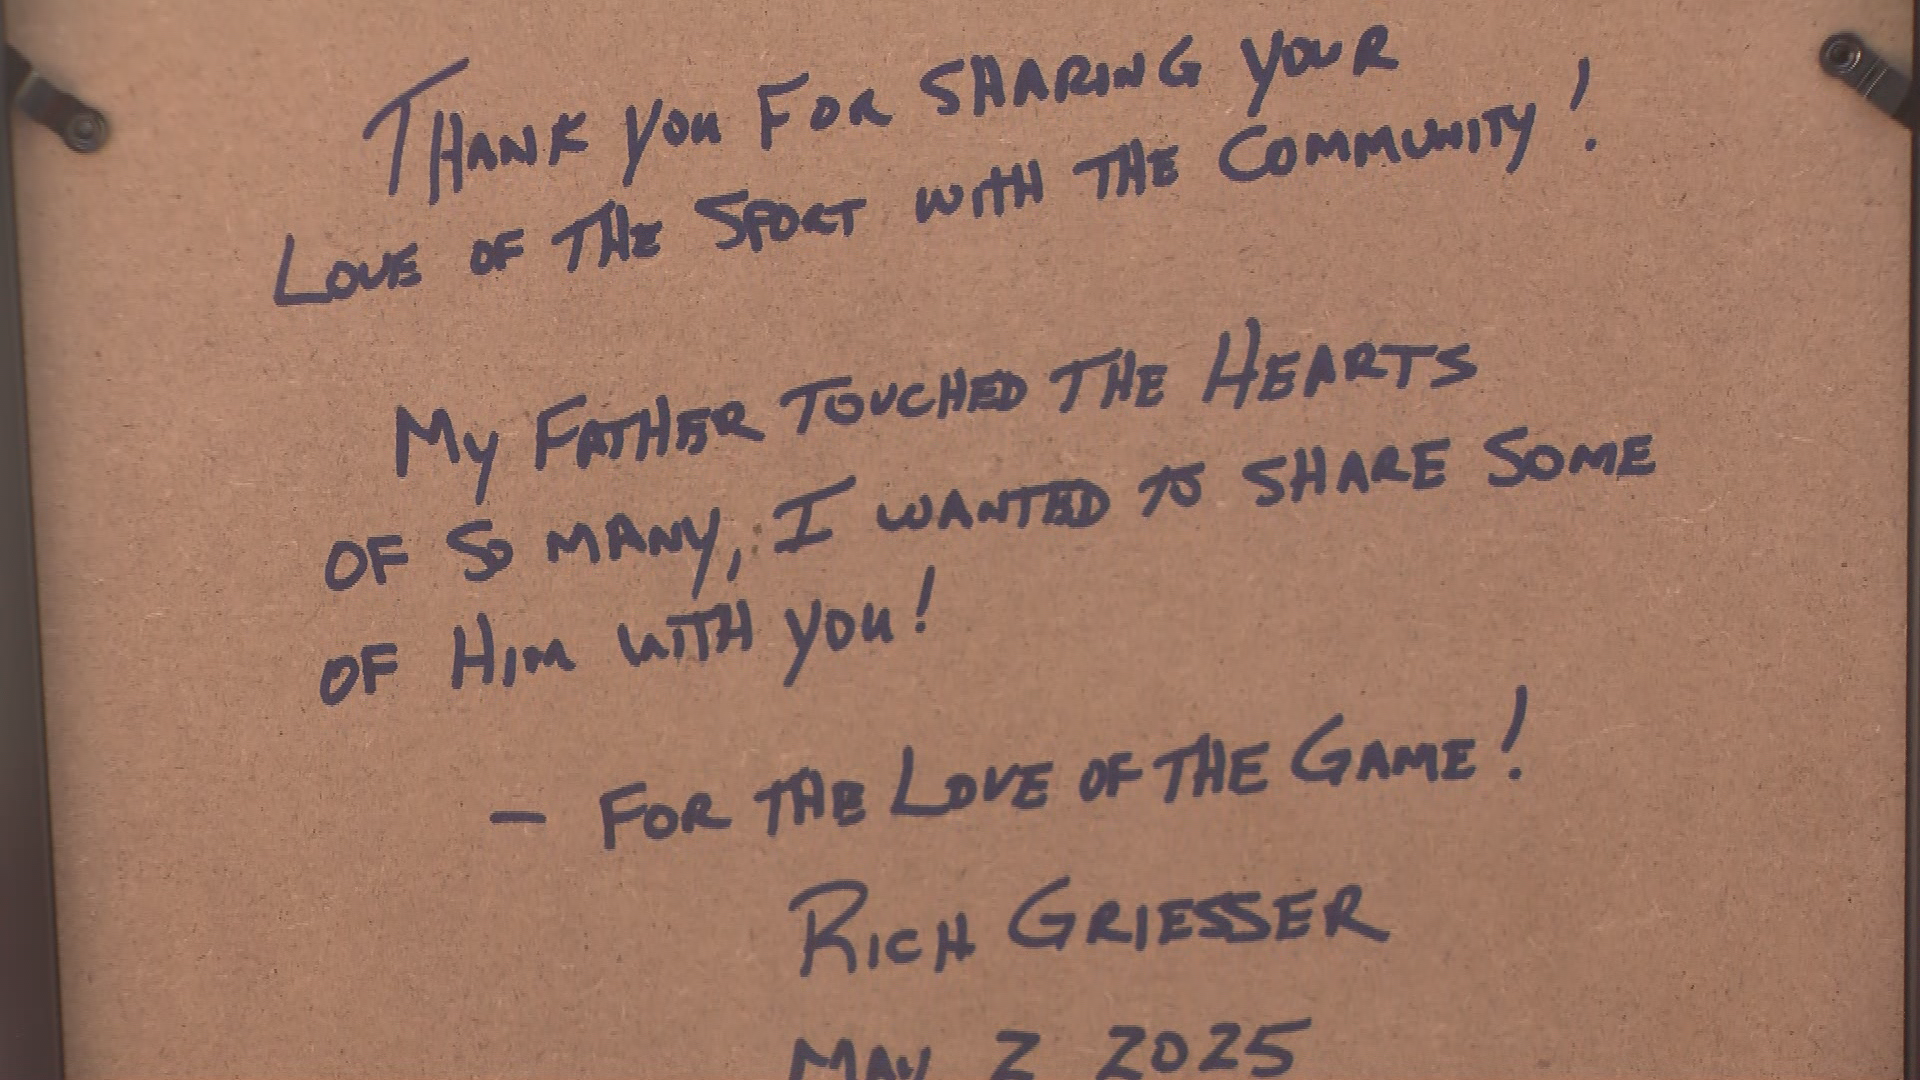 THANK YOU FOR SHARING YOUR
LOVE OF THE SPORT WITH THE COMMUNITY!
MY FATHER TOUCHED THE HEARTS
OF SO MANY, I WANTED TO SHARE SOME
OF HIM WITH YOU!
- FOR THE LOVE OF THE GAME!
RICH GRIESSER
MAY 2 2025